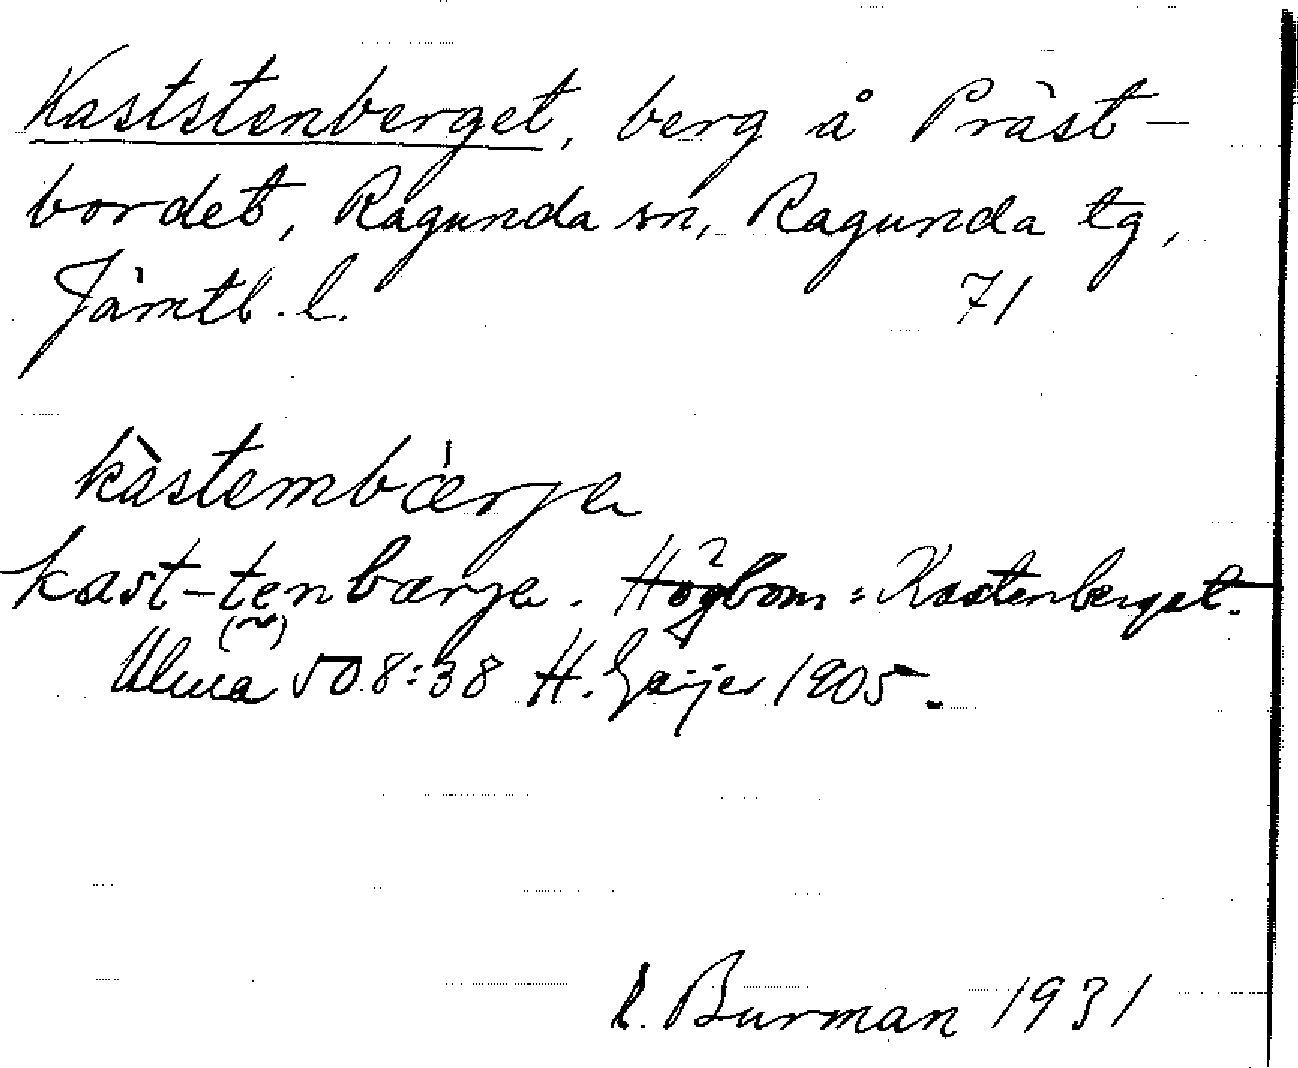 Kaststenberget, berg å Präst-
bordet, Ragunda sn, Ragunda tg,
Jämtl. l. 71
kàstembǽrje
kast-tenbærje. Högbom: Kastenberget.
Ulma 508:38 H. Geijer 1905.
L. Burman 1931